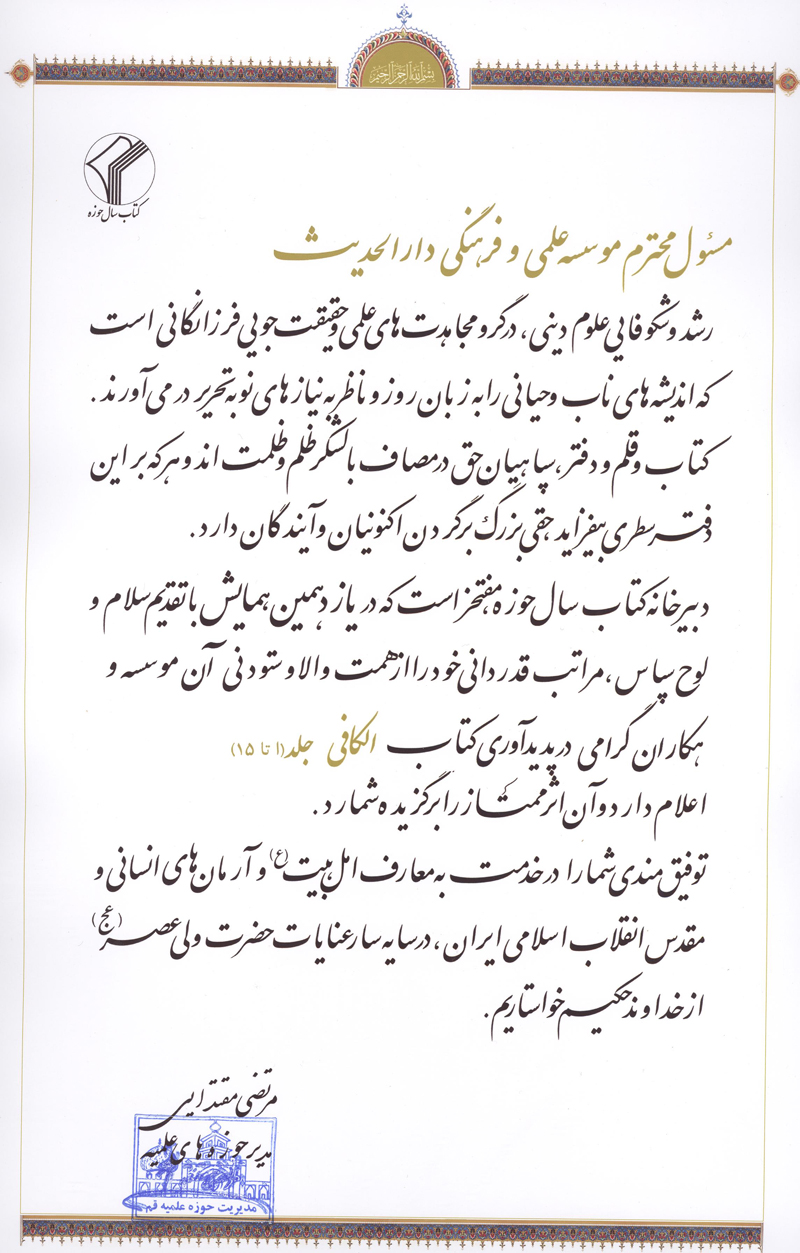 بسم الله الرحمن الرحیم
کتاب سال حوزه
مسئول محترم موسسه علمی و فرهنگی دارالحدیث
رشد و شکوفایی علوم دینی، در گرو مجاهدت های علمی و حقیقت جویی فرزانگانی است
که اندیشه های ناب وحیانی را به زبان روز و ناظر به نیازهای نو به تحریر در می آورند.
کتاب و قلم و دفتر، سپاهیان حق در مصاف با لشگر ظلم و ظلمت اند و هر که بر این
دفتر سطری بیفزاید، حقی بزرگ بر گردن اکنونیان و آیندگان دارد.
دبیرخانه کتاب سال حوزه، مفتخر است که در یازدهمین همایش با تقدیم سلام و
لوح سپاس، مراتب قدردانی خود را از همت والا و ستودنی آن موسسه و
همکاران گرامی در پدیدآوری کتاب الکافی جلد (۱ تا ۱۵)
اعلام دارد و آن اثر ممتاز را برگزیده شمارد.
توفیق مندی شما را در خدمت به معارف اهل بیت (ع) و آرمان های انسانی و
مقدس انقلاب اسلامی ایران، در سایه سار عنایات حضرت ولی عصر (عج)
از خداوند حکیم خواستاریم.
مرتضی مقتدایی
مدیر حوزه های علمیه
مدیریت حوزه علمیه قم